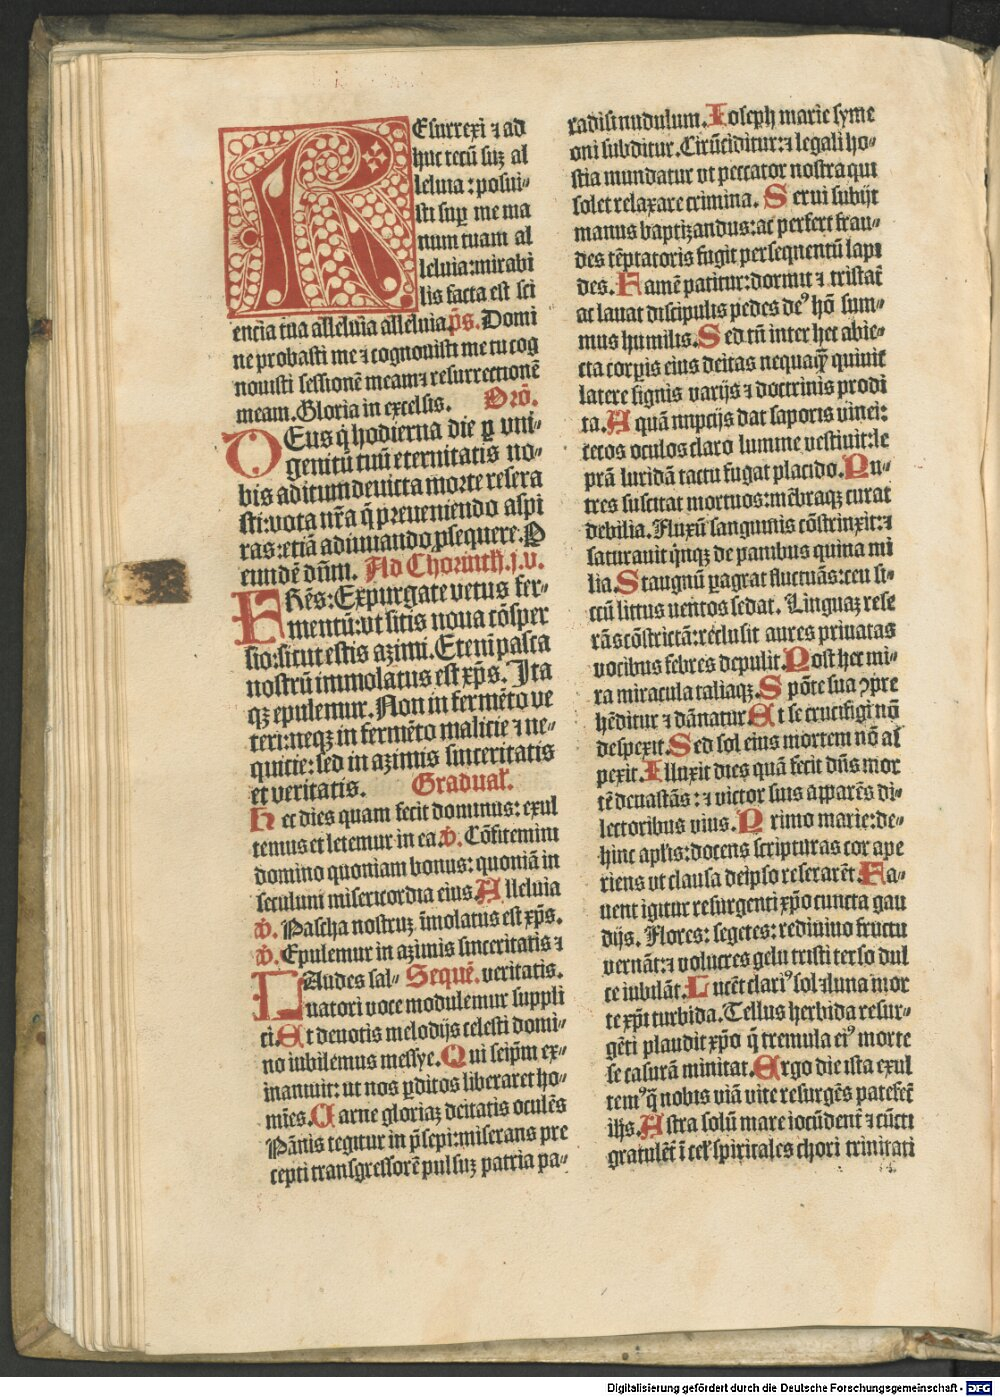 REsurrexi ⁊ ad
huc tecū suꝫ al
leluia : posui⸗
sti suꝑ me ma
num tuam al
leluia: mirabi
lis facta est sci
encia tua alleluia alleluia p̄s. Domi
ne probasti me ⁊ cognouisti me tu cog
nouisti sessionē meam ⁊ resurrectionē
meam. Gloria in excelsis. Orō.
DEus q̇ hodierna die ꝑ vni⸗
genitū tuū eternitatis no⸗
bis aditum deuicta morte resera
sti: vota nr̄a q̄ preueniendo aspi
ras: etiā adiuuando ꝓsequere. P
eundē dn̄m. Ad Chorinth. j. v.
FRēs: Expurgate vetus fer⸗
mentū: vt sitis noua cōsper
sio: sicut estis azimi. Eteni pasca
nostrū immolatus est xp̄s. Ita
qꝫ epulemur. Non in fermēto ve
teri: neqꝫ in fermēto malicie ⁊ ne⸗
quicie: sed in azimis sinceritatis
et veritatis. Gradual.
Hec dies quam fecit dominus: exul
temus et letemur in ea. ℣. Cōfitemini
domino quoniam bonus: quoniā in
seculum misericordia eius. Alleluia
℣. Pascha nostruꝫ īmolatus est xp̄s.
℣. Epulemur in azimis sinceritatis ⁊
LAudes sal⸗ Sequē. veritatis.
uatori voce modulemur suppli
ci. Et deuotis melodijs celesti domi⸗
no iubilemus messye. Qui seip̄m ex⸗
inaniuit: ut nos ꝑditos liberaret ho⸗
mīes. Carne gloriaꝫ deitatis oculēs
Pānis tegitur in p̄sepi: miserans pre
cepti transgressorē pulsuꝫ patria pa⸗
radisi nudulum. Ioseph marie syme
oni subditur. Circūciditur: ⁊ legali ho⸗
stia mundatur vt peccator nostra qui
solet relaxare crimina. Serui subijt
manus baptizandus: ac perfert frau⸗
des tēptatoris fugit persequentū lapi
des. Famē patitur: dormit ⁊ tristat̄
at lauat discipulis pedes deꝰ hō sum⸗
mus humilis. Sed tn̄ inter hec abie⸗
cta corꝑis eius deitas nequaq̄ꝫ quiuit
latere signis varijs ⁊ doctrinis prodi
ta. Aquā nupcijs dat saporis vinei:
cecos oculos claro lumine vestiuit: le
prā luridā tactu fugat placido. Pu⸗
tres suscitat mortuos: mēbraqꝫ curat
debilia. Fluxū sanguinis cōstrinxit: ⁊
saturauit qn̄qꝫ de panibus quina mi
lia. Stangnū ꝑagrat fluctuās: ceu si⸗
ccū littus uentos sedat. Linguaꝫ rese
rās cōstrictā: reclusit aures priuatas
vocibus febres depulit. Post hec mi⸗
ra miracula taliaqꝫ. Spōte sua ꝯpre
hēditur ⁊ dānatur. Et se crucifigi nō
despexit. Sed sol eius mortem nō as
pexit. Illuxit dies quā fecit dn̄s mor
tē deuastās: ⁊ victor suis apparēs di⸗
lectoribus viuus. Primo marie: de⸗
hinc apl̄is: docens scripturas cor ape
riens vt clausa de ip̄so reserarēt. Fa⸗
uent igitur resurgenti xp̄o cuncta gau
dijs. Flores: segetes: rediuiuo fructu
vernāt: ⁊ volucres gelu tristi terso dul
ce iubilāt. Lucēt clariꝰ sol ⁊ luna mor
te xp̄i turbida. Tellus herbida resur⸗
gēti plaudit xp̄o q̄ tremula eiꝰ morte
se casurā minitat. Ergo die ista exul
temꝰ q̄ nobis viā vite resurgēs patefecit̄
ihs. Astra solū mare iocūdent̄ ⁊ cūcti
gratulēt̄ ī cel̄ spiritales chori trinitati
Digitalisierung gefördert durch die Deutsche Forschungsgemeinschaft - DFG